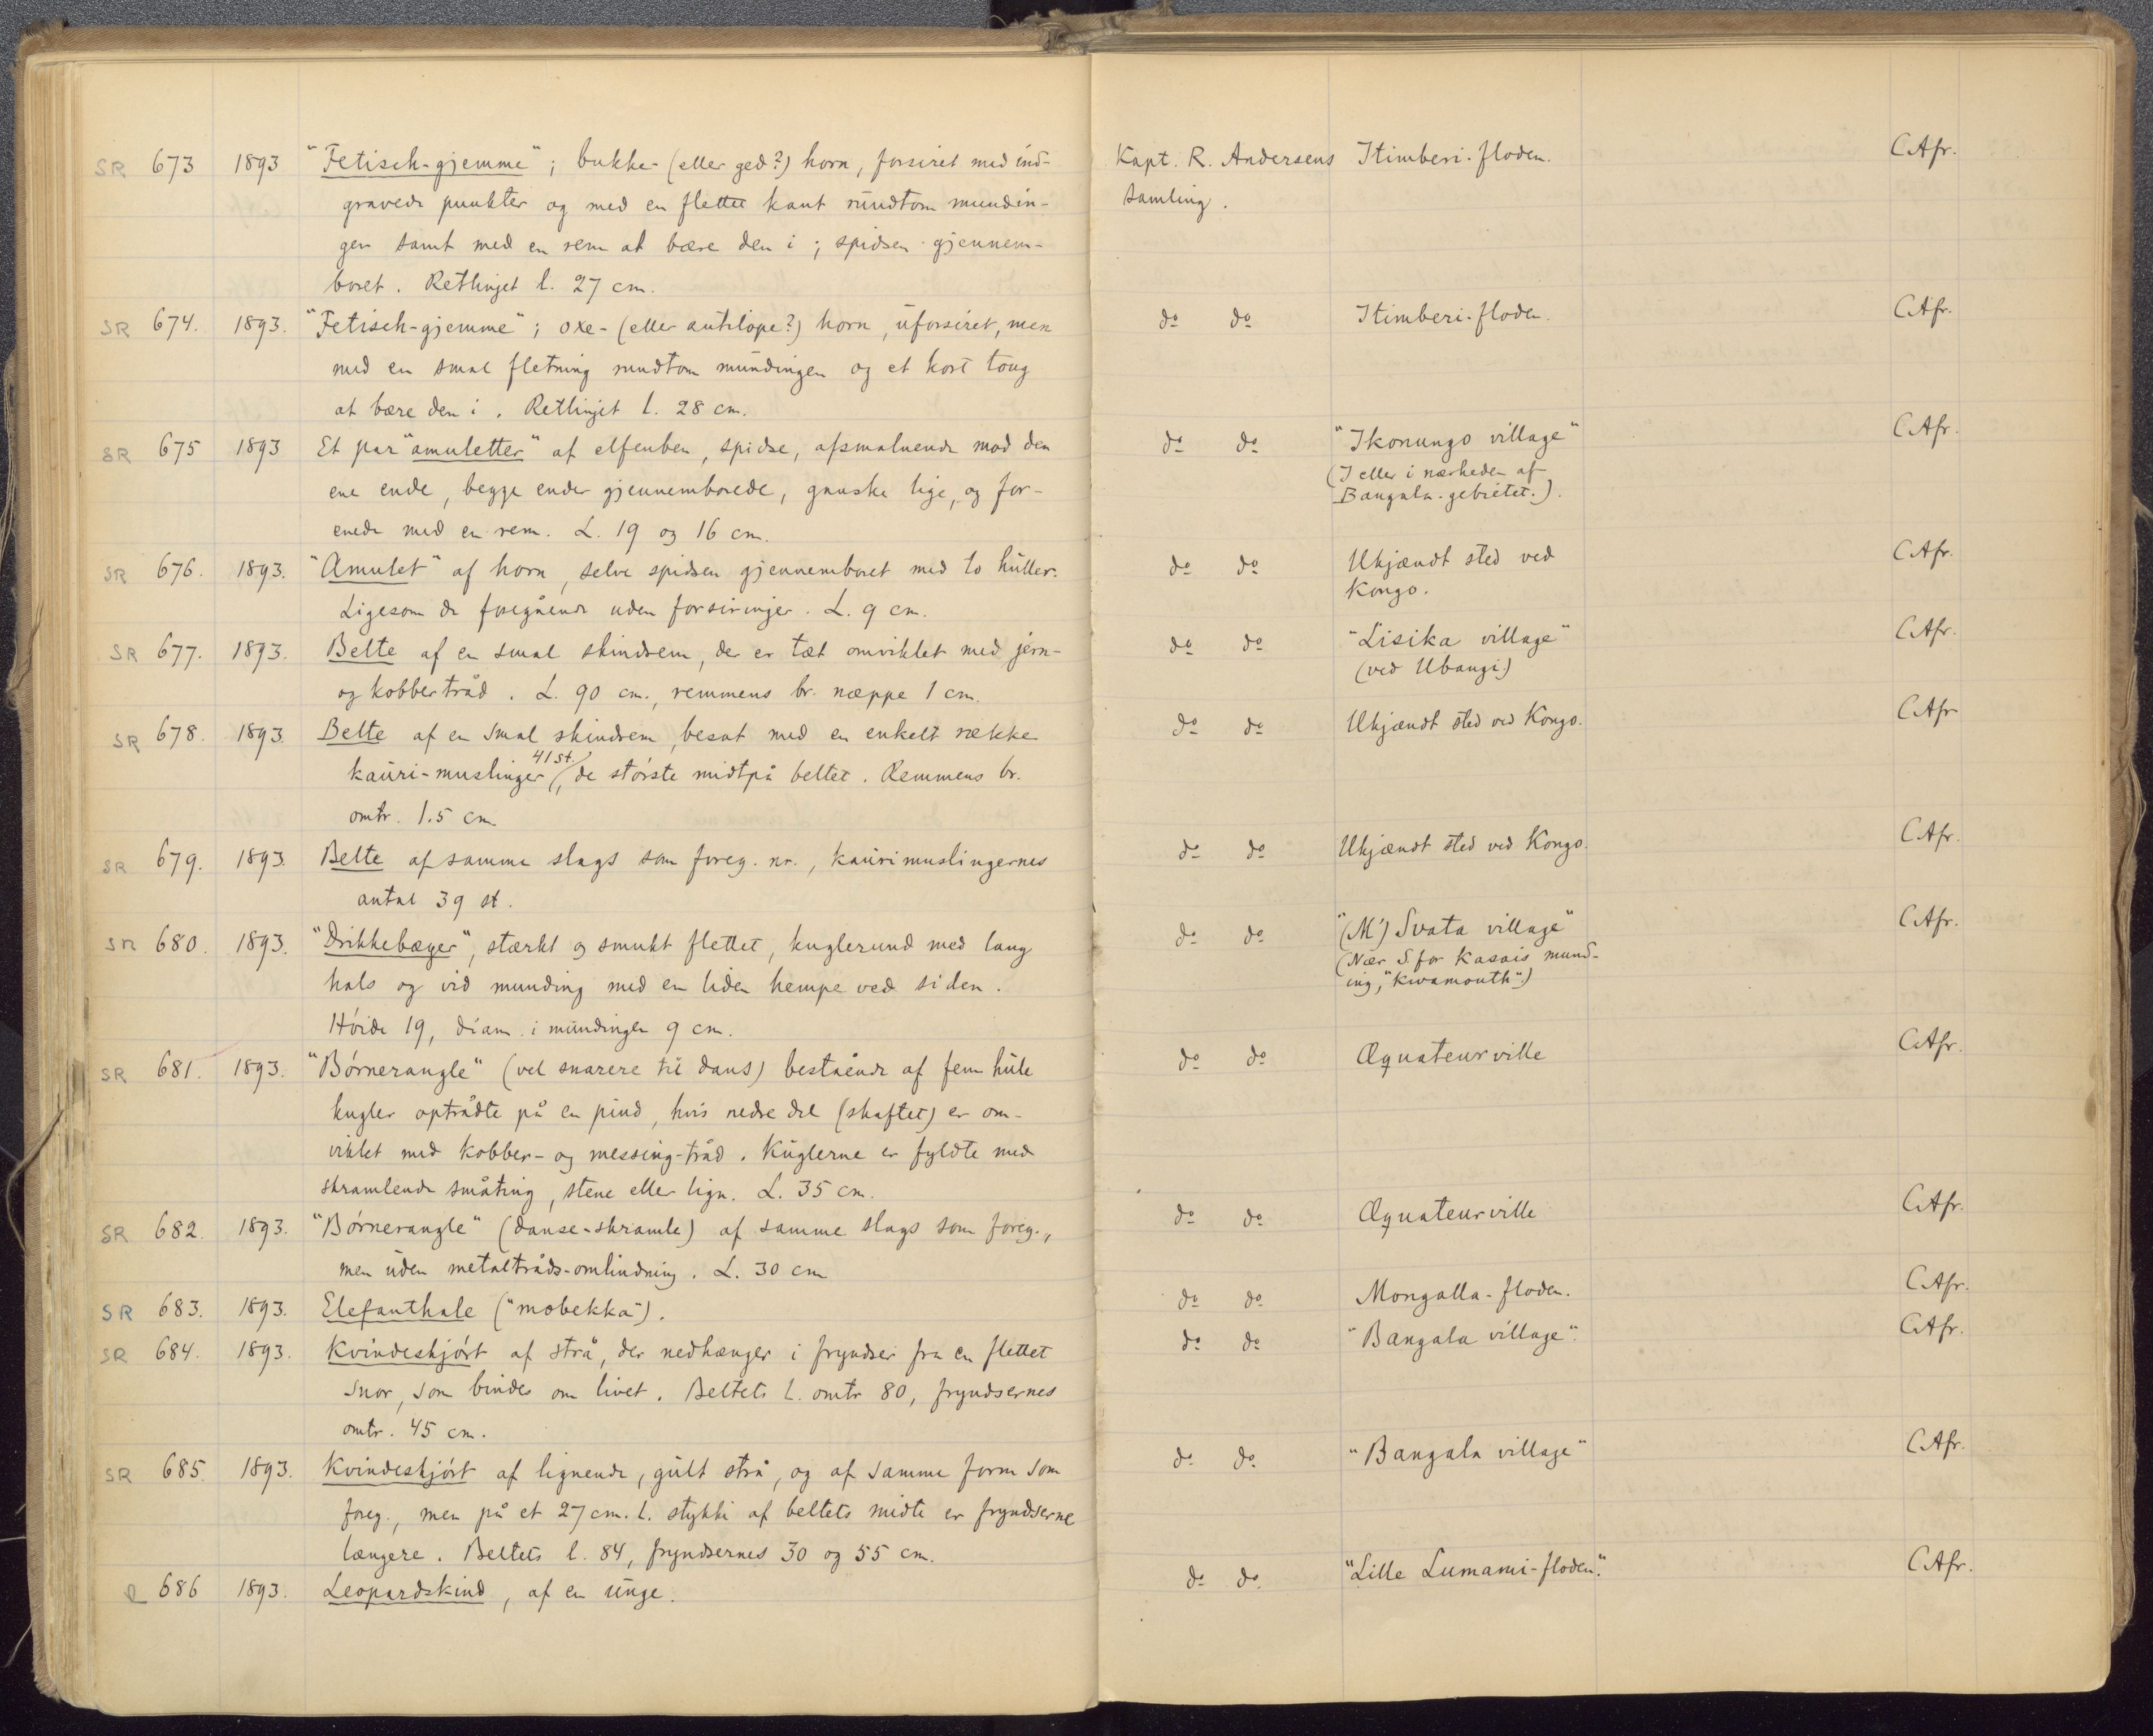 SR 673 1893 "Fetisch-gjemme"; bukke- (eller ged?) horn, forsiret med ind- Kapt. R. Andersens Itimberi-floden. C.Afr.
gravede punkter og med en flettet kant rundtom mundin- samling.
gen samt med en rem at bære den i; spidsen gjennem-
boret. Retlinjet l. 27 cm.
SR 674. 1893. "Fetisch-gjemme"; oxe- (eller antilope?) horn, uforsiret, men do do Itimberi-floden. C.Afr.
med en smal fletning rundtom mundingen og et kort toug
at bære den i. Retlinjet l. 28 cm.
SR 675 1893 Et par "amuletter" af elfenben, spidse, afsmalnende mod den do do "Ikonungo village" C.Afr.
ene ende, begge ender gjennemborede, ganske lige, og for- (I eller i nærheden af
Bangala-gebietet.).
enede med en rem. L. 19 og 16 cm.
SR 676. 1893. "Amulet" af horn, selve spidsen gjennemboret med to huller. do do Ukjændt sted ved C.Afr.
Ligesom de foregående uden forsiringer. L. 9 cm. Kongo.
SR 677. 1893. Belte af en smal skindrem, der er tæt omviklet med jern- do do "Lisika village" C.Afr.
og kobbertråd. L. 90 cm., remmens br. neppe 1 cm. (ved Ubangi)
SR 678. 1893. Belte af en smal skindrem, besat med en enkelt række do do Ukjændt sted ved Kongo. C.Afr
kauri-muslinger, 41 st., de største midtpå beltet. Remmens br.
omtr. 1.5 cm
SR 679. 1893. Belte af samme slags som foreg. nr., kaurimuslingernes do do Ukjændt sted ved Kongo. C.Afr.
antal 39 st.
SR 680. 1893. "Drikkebæger", stærkt og smukt flettet, kuglerund med lang do do "(M') Svata village" C.Afr.
hals og vid munding med en liden hempe ved siden. (Nær S. for Kasais mund-
ing, "Kwamouth".)
Høide 19, diam. i mundingen 9 cm.
SR 681. 1893. "Børnerangle" (vel snarere til dans) bestående af fem hule do do Æquateurville C.Afr.
kugler optrådte på en pind, hvis nedre del (skaftet) er om-
viklet med kobber- og messing-tråd. Kuglerne er fyldte med
skramlende småting, stene eller lign. L. 35 cm.
SR 682. 1893. "Børnerangle" (danse-skramle) af samme slags som foreg., do do Æquateurville C.Afr.
men uden metaltråds-omlindning. L. 30 cm
SR 683. 1893. Elefanthale ("mobekka"). do do Mongalla-floden. C.Afr.
SR 684. 1893. Kvindeskjørt af strå, der nedhænger i fryndser fra en flettet do do "Bangala village". C.Afr.
snor, som bindes om livet. Beltets l. omtr 80, fryndsernes
omtr. 45 cm.
SR 685. 1893. Kvindeskjørt af lignende, gult strå, og af samme form som do do "Bangala village" C.Afr.
foreg., men på et 27 cm. l. stykke af beltets midte er fryndserne
længere. Beltets l. 84, fryndsernes 30 og 55 cm.
686 1893. Leopardskind, af en unge. do do. "Lille Lumami-floden". C.Afr.